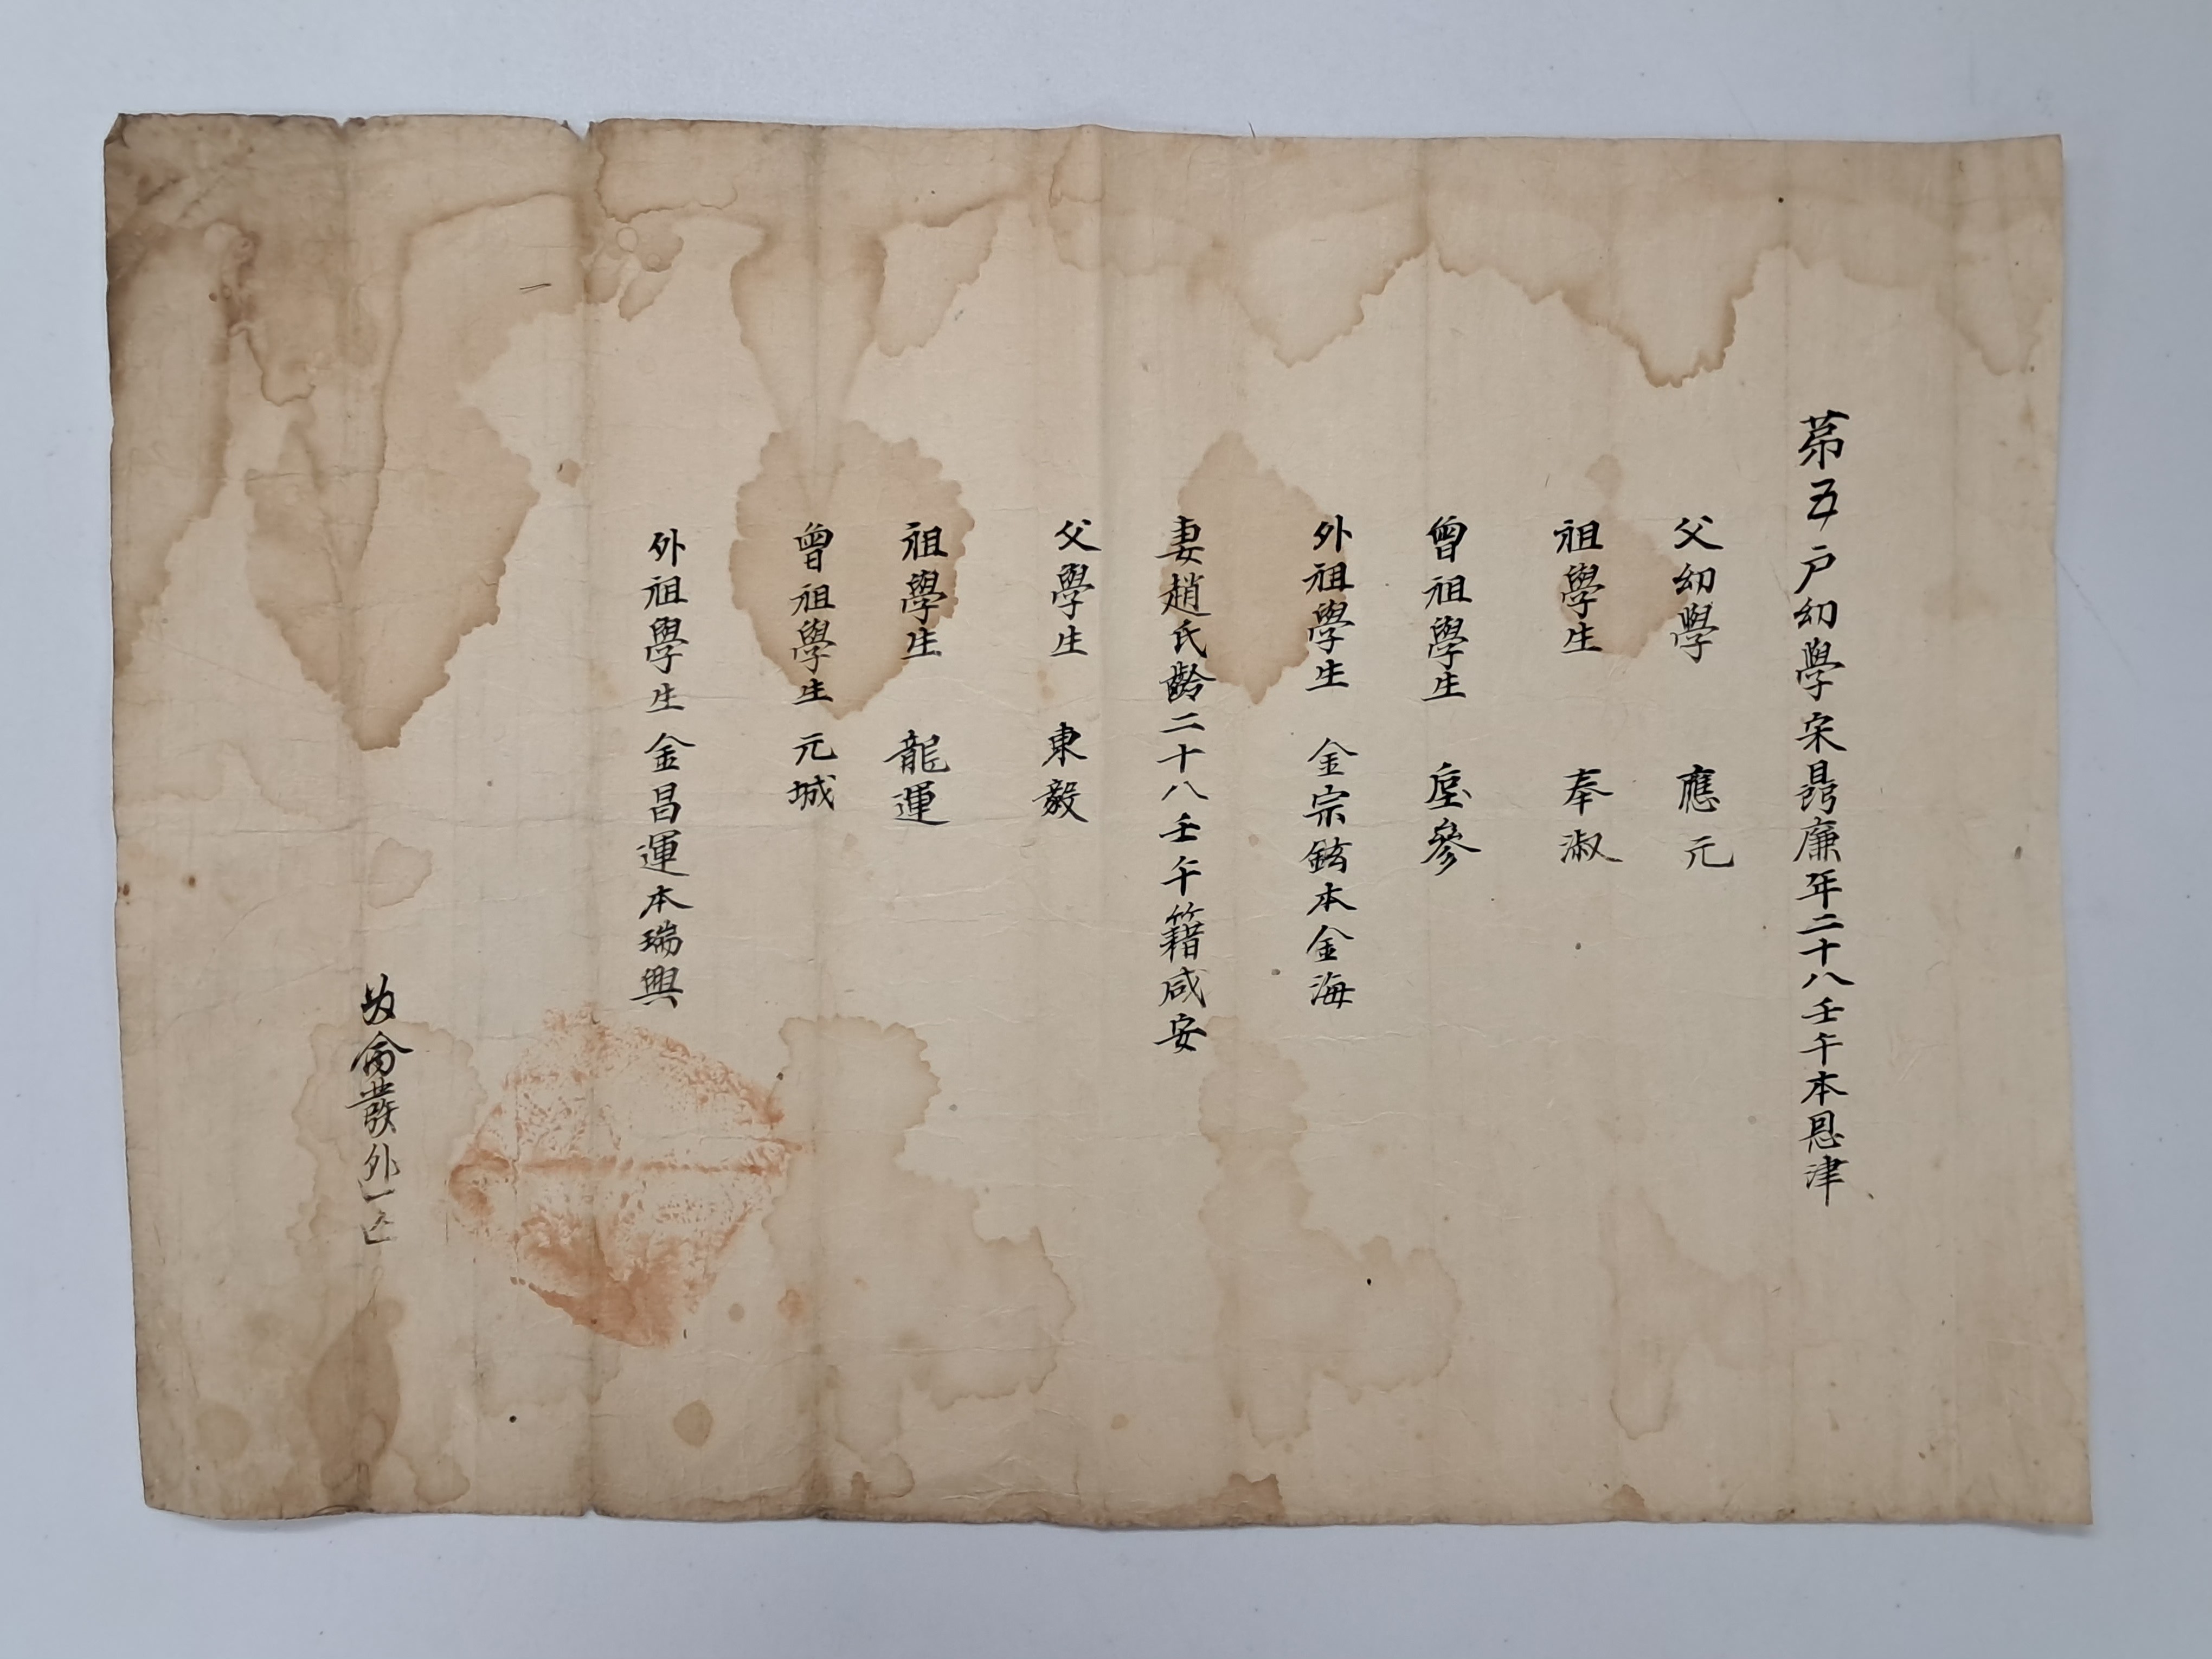 第五戶幼學宋昻廉年二十八壬午本恩津
父幼學 應元
祖學生 奉淑
曾祖學生 參
外祖學生 金宗鉉本金海
妻趙氏齡二十八壬午籍咸安
父學生 東毅
祖學生 龍運
曾祖學生 元城
外祖學生金昌運本瑞興